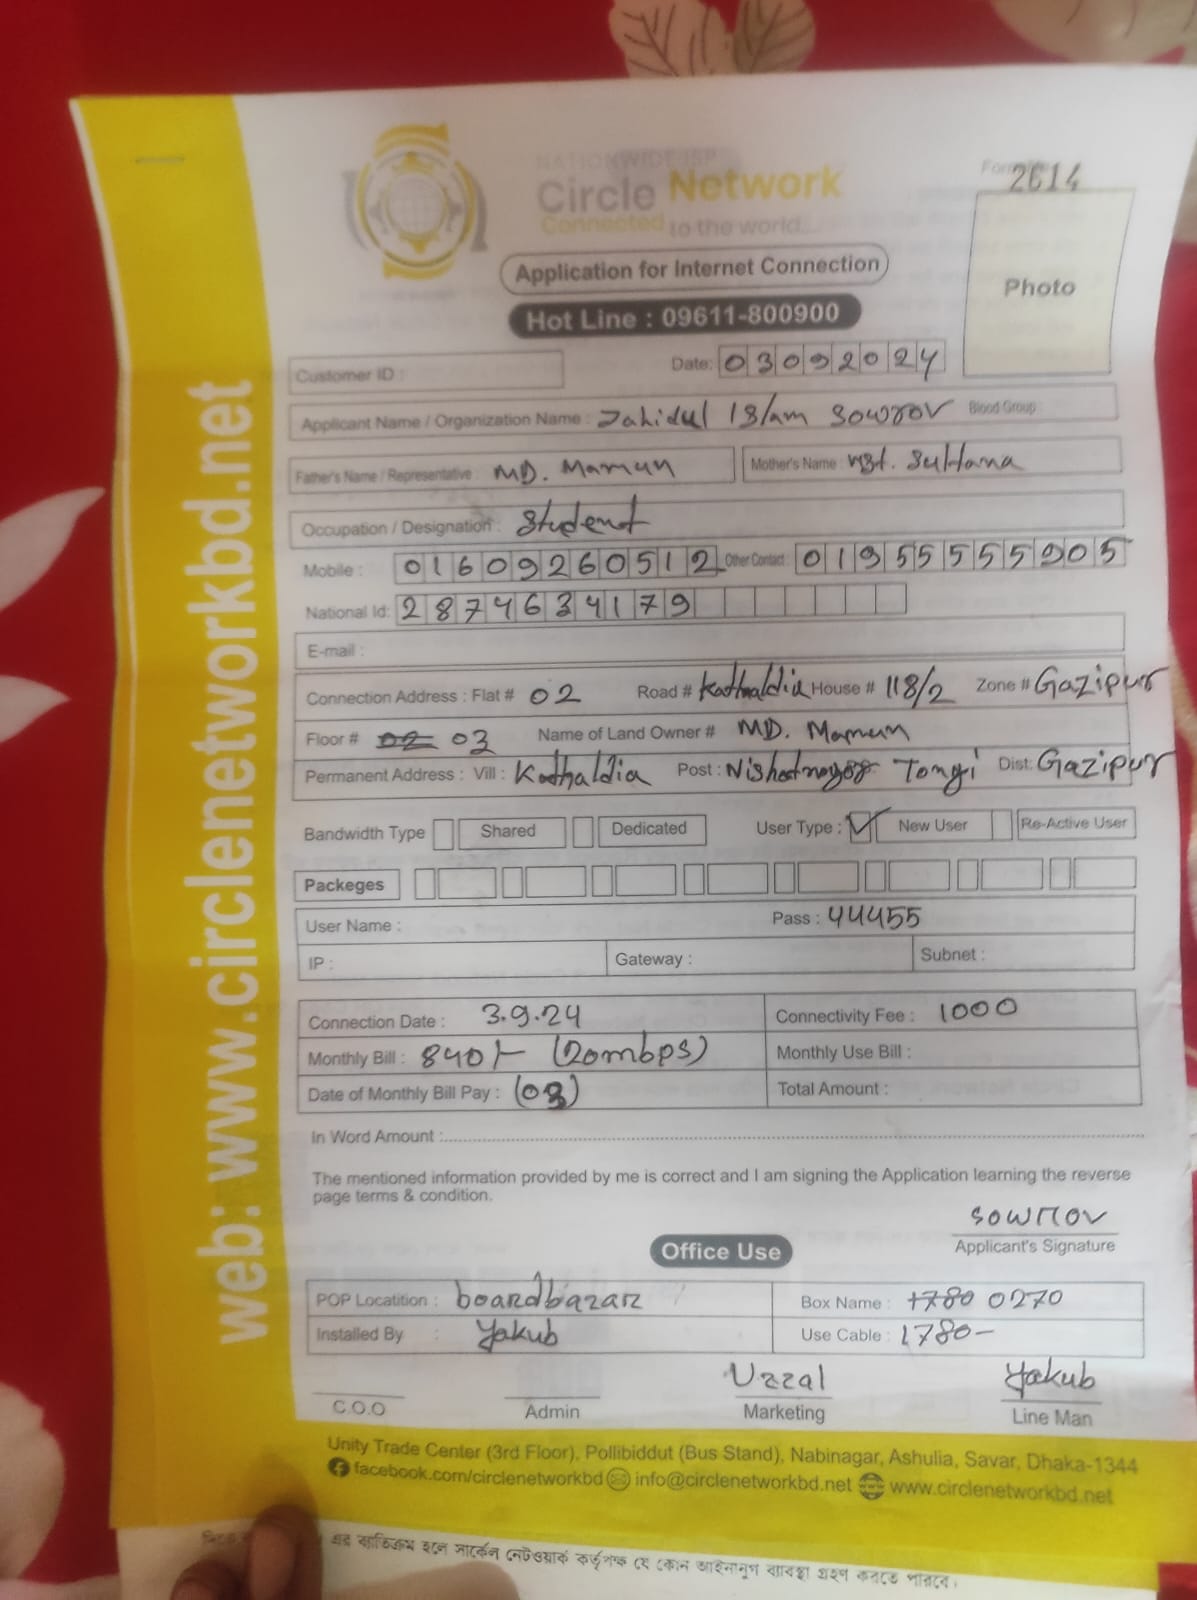 NATIONWIDE ISP
Circle Network
Connected to the world...
2614
Photo
Application for Internet Connection
Hot Line : 09611-800900
Customer ID :
Date: 03092024
Applicant Name / Organization Name : Jahidul Islam Sowrov Blood Group
Father's Name / Representative : MD. Mamun Mother's Name : Mst. Sultana
Occupation / Designation : Student
Mobile : 01609260512 Other Contact : 01955555905
National Id: 2874634179
E-mail :
Connection Address : Flat # 02 Road # Kathaldia House # 118/2 Zone # Gazipur
Floor # 02 03 Name of Land Owner # MD. Mamun
Permanent Address : Vill : Kathaldia Post : Nishatnagar Tongi Dist: Gazipur
Bandwidth Type Shared Dedicated User Type : New User Re-Active User
Packeges
User Name : Pass : 44455
IP : Gateway : Subnet :
Connection Date : 3.9.24 Connectivity Fee : 1000
Monthly Bill : 840/- (20mbps) Monthly Use Bill :
Date of Monthly Bill Pay : (03) Total Amount :
In Word Amount :
The mentioned information provided by me is correct and I am signing the Application learning the reverse
page terms & condition.
sowrov
Applicant's Signature
Office Use
POP Locatition : boardbazar Box Name : 1780 0270
Installed By : Yakub Use Cable : 1780-
Uzzal Yakub
C.O.O Admin Marketing Line Man
Unity Trade Center (3rd Floor), Pollibiddut (Bus Stand), Nabinagar, Ashulia, Savar, Dhaka-1344
facebook.com/circlenetworkbd info@circlenetworkbd.net www.circlenetworkbd.net
web: www.circlenetworkbd.net
এর ব্যতিক্রম হলে সার্কেল নেটওয়ার্ক কর্তৃপক্ষ যে কোন আইনানুগ ব্যাবস্থা গ্রহণ করতে পারবে।